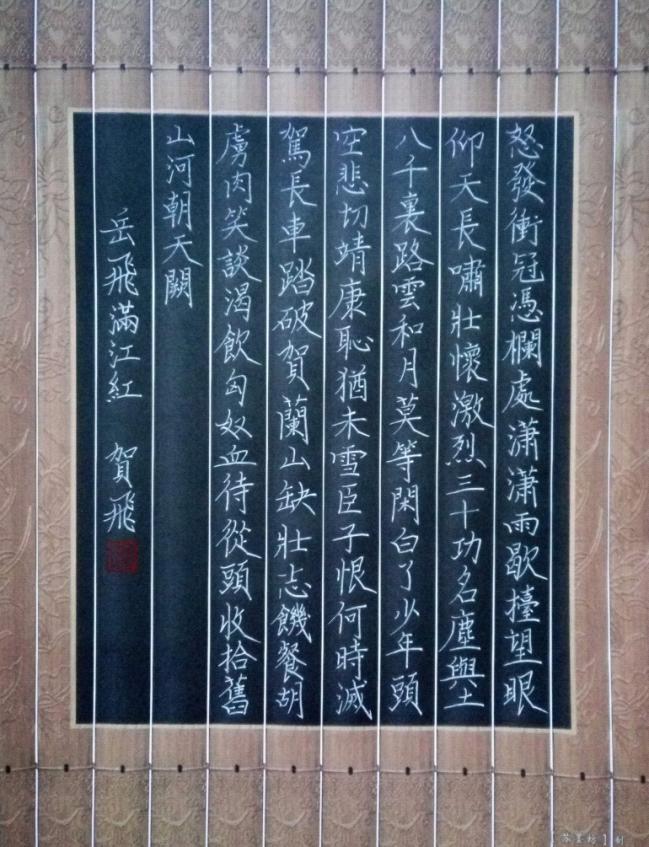 怒發衝冠憑欄處瀟瀟雨歇擡望眼
仰天長嘯壯懷激烈三十功名塵與土
八千裏路雲和月莫等閑白了少年頭
空悲切靖康恥猶未雪臣子恨何時滅
駕長車踏破賀蘭山缺壯志饑餐胡
虜肉笑談渴飲匈奴血待從頭收拾舊
山河朝天闕
岳飛滿江紅 賀飛